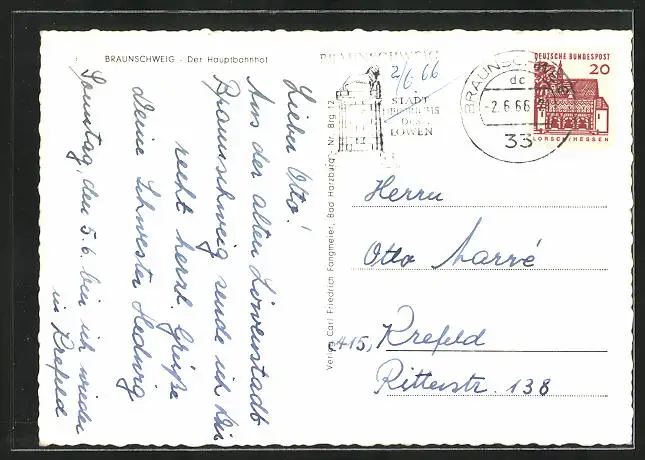 BRAUNSCHWEIG - Der Hauptbahnhof
Lieber Otto!
Aus der alten Löwenstadt
Braunschweig sende ich Dir
recht herzl. Grüße
Deine Schwester Hedwig
Sonntag, den 5.6. bin ich wieder
in Krefeld
Verlag Carl Friedrich Fangmeier, Bad Harzburg - Nr. Brg 12
BRAUNSCHWEIG
2/6 66
STADT
HEINRICHS
DES
LÖWEN
BRAUNSCHWEIG
dc
-2.6.66
33
DEUTSCHE BUNDESPOST
20
LORSCH/HESSEN
Herrn
Otto Larvé
415, Krefeld
Ritterstr. 138